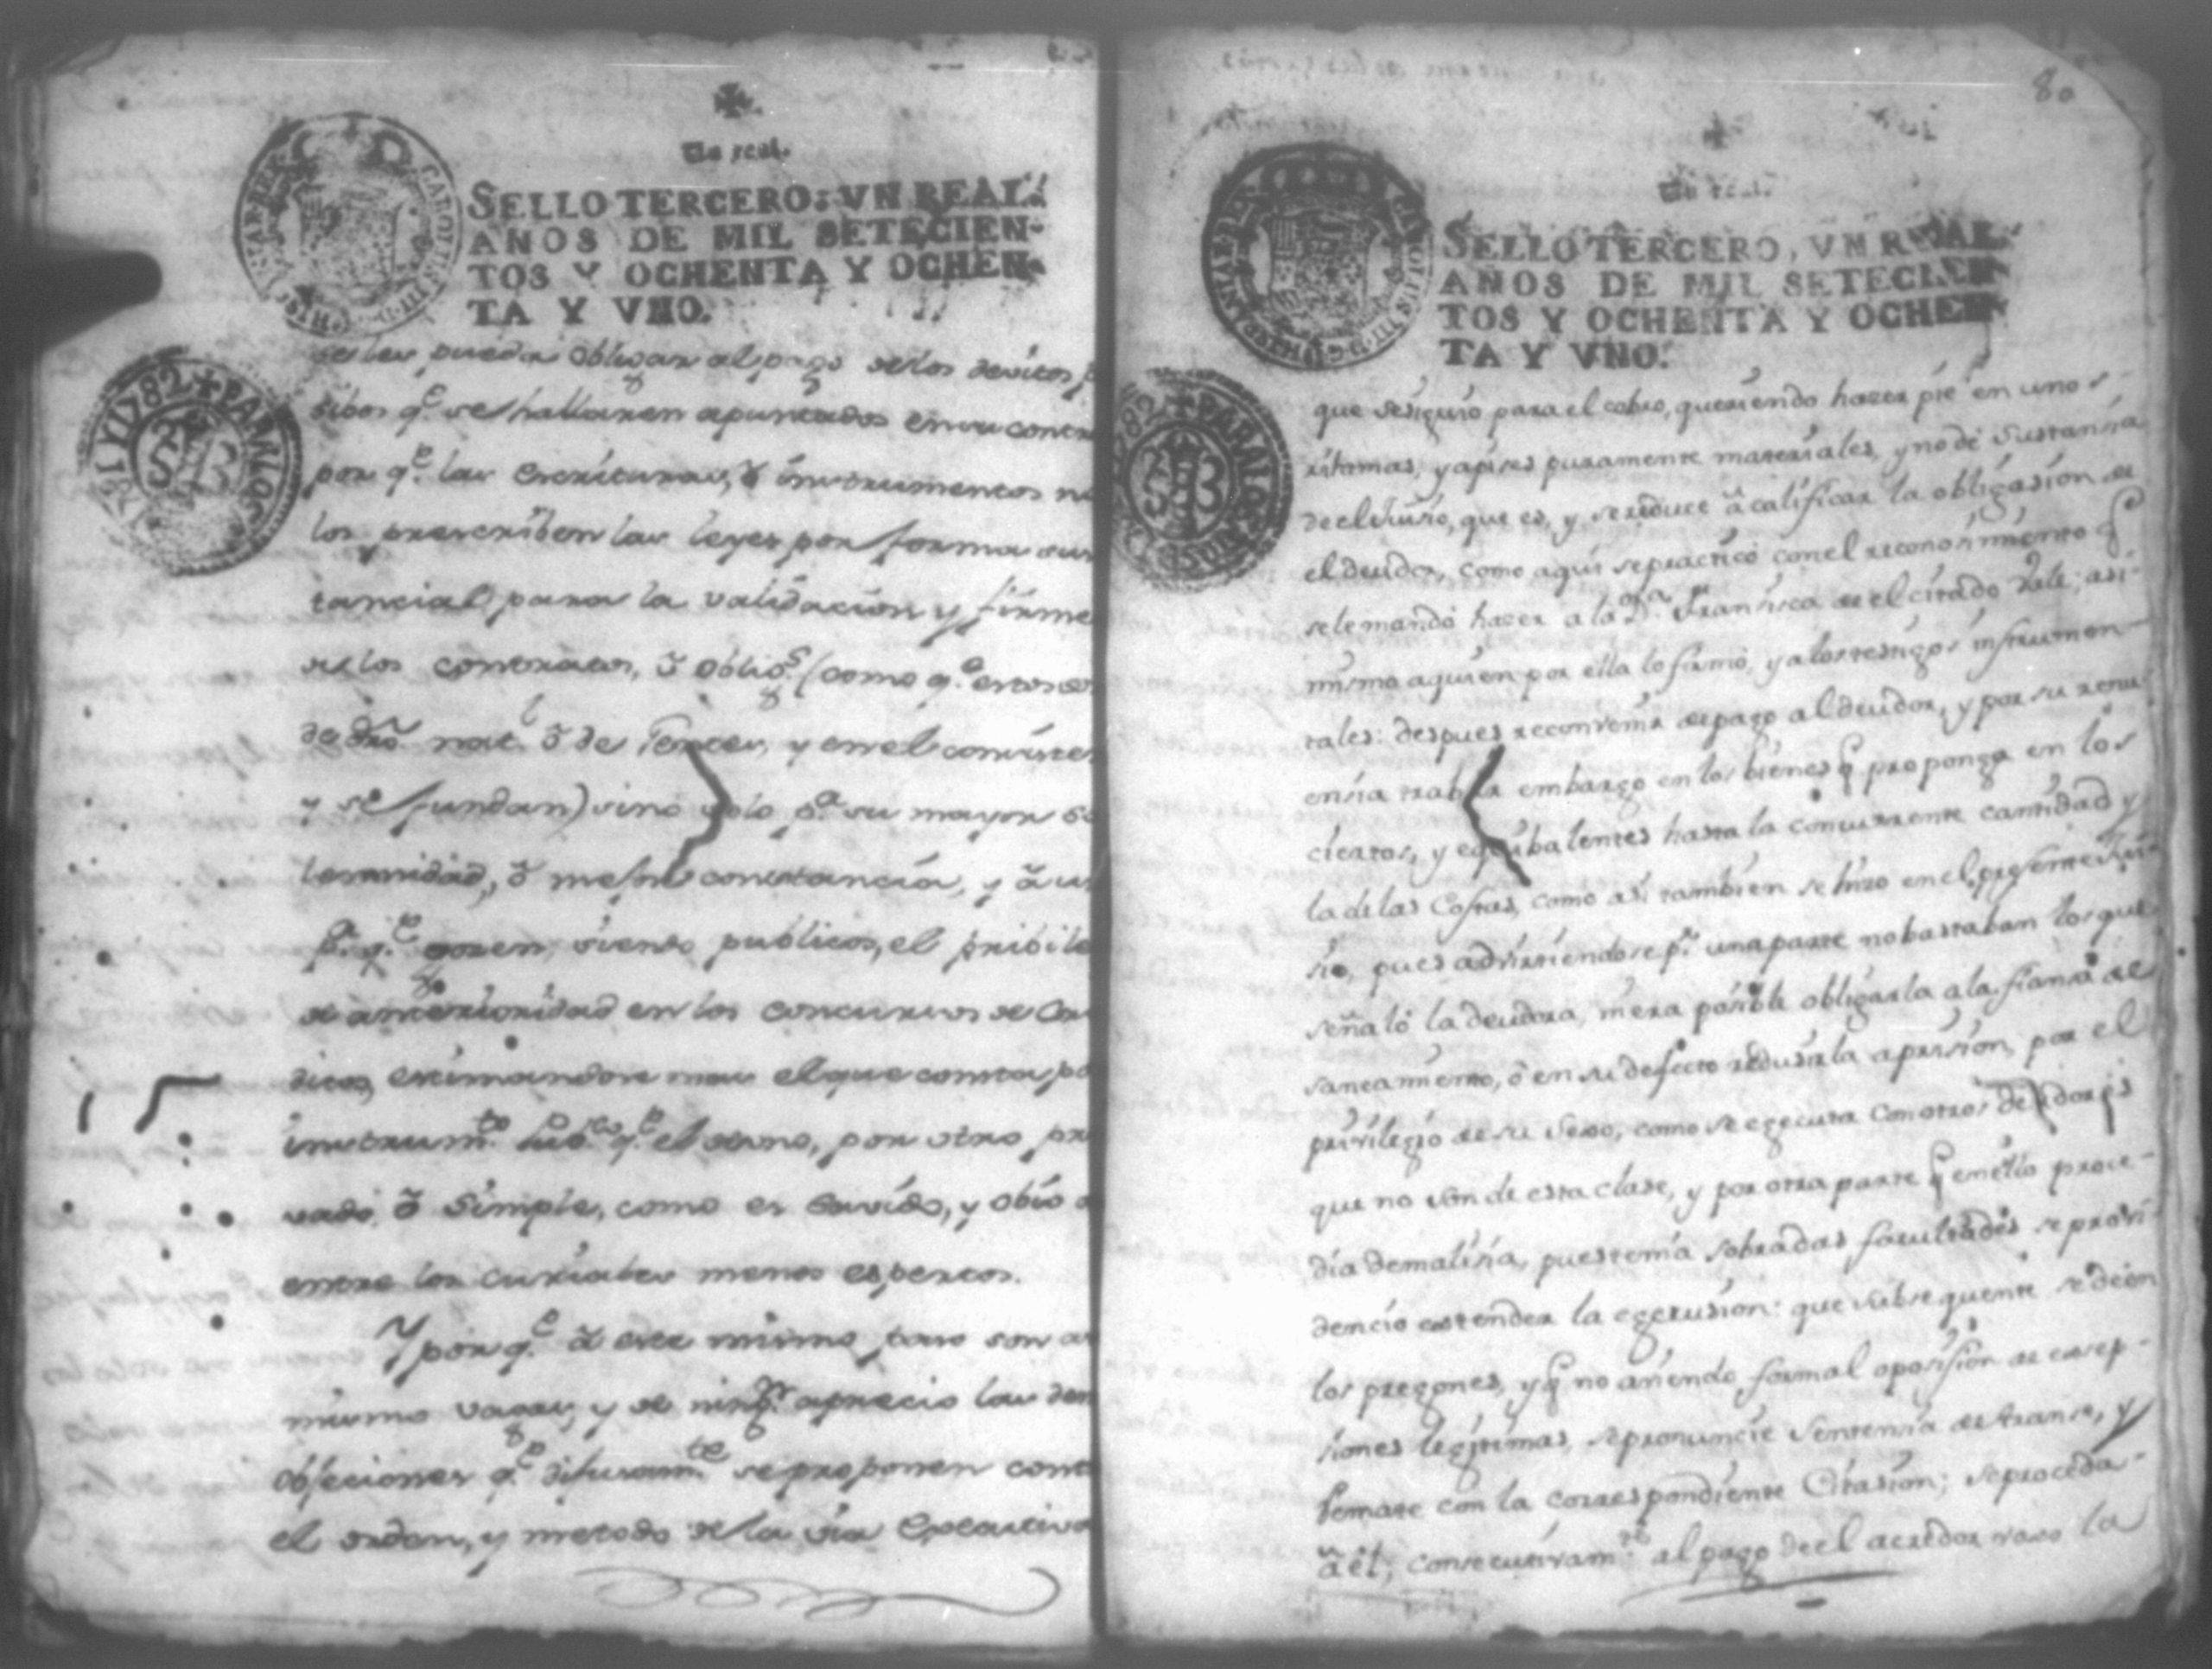 Un real.
SELLO TERCERO: VN REAL:
AÑOS DE MIL SETECIEN-
TOS Y OCHENTA Y OCHEN-
TA Y VNO.
CAROLUS III D G HISPANIAR REX
1781 Y 1782 + PARA LOS
se les pueda obligar al pago de los devitos p
sibos q.e se hallaren apuntados en su contra
por q.e las escrituras, ó instrumentos no
los prescriben las leyes por forma sus
tancial para la validacion y firme
de los contratos, ó oblig.s (como q.e estos son
de dro nat.l ó de Gentes, y en el consisten
y se fundan) sino solo p.a su mayor so
lemnidad, ó mejor constancia, y á un
p.a q.e gozen, siendo publicos, el pribile
de anterioridad en los concursos de Cre
ditos, estimandose mas el que consta po
instrum.to pub.co q.e el otro, por otro pri
vado, ó simple, como es savido, y obio a
entre los curiales menos espertos.
Y por q.e á este mismo paso son as
mismo vagas, y de ning.n aprecio las dem
objeciones q.e difusam.te se proponen contra
el orden, y metodo de la via Executiva
80
Un real.
SELLO TERCERO, VN REAL.
AÑOS DE MIL SETECIEN
TOS Y OCHENTA Y OCHEN
TA Y VNO.
CAROLUS III D G HISPANIAR REX
1782 + PARA LOS
que se siguio para el cobro, queriendo hazer pie en unos
ritamas, y apizes puramente materiales, y no de sustansia
de el Juisio, que es, y se reduce á calificar la obligasion de
el deudor, como aqui se practicó con el reconosimiento q
se le mandó hazer a la D.ña Fransisca de el citado Vale; asi-
mismo a quien por ella lo firmó, y a los testigos instrumen-
tales: despues reconvenir de pago al deudor, y por su renu
ensia trabar embargo en los bienes q proponga en los
ciertos, y equibalentes hasta la concurrente cantidad y
la de las Costas, como asi tambien se hizo en el presente Jui-
sio, pues advirtiendose p.r una parte no bastaban los que
señaló la deudora, ni era posible obligarla a la fiansa de
saneamiento, ó en su defecto redusirla a prision, por el
privilegio de su sexo, como se egecuta con otros deudores
que no son de esta clase, y por otra parte q en ello proce-
dia de malisia, pues tenia sobradas facultades se provi-
dencio estender la egecusion: que subsequente se deien
los pregones, y q no aviendo formal oposision de exsep-
siones legitimas, se pronuncie Sentensia de transe, y
Remate con la correspondiente Citasion; se proceda-
á él; consecutivam.te al pago de el acredor vaxo la